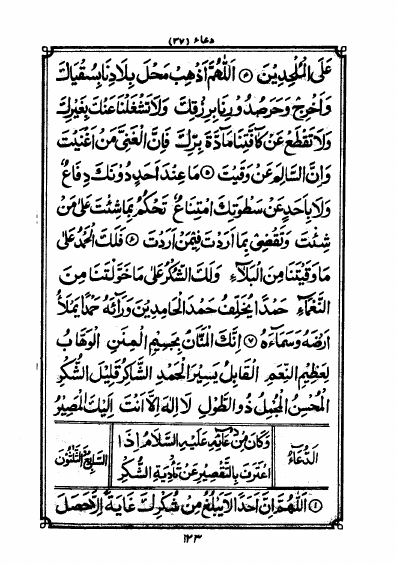 دعاء (٣٧)
عَلَى الْمُلْحِدِيْنَ ۝ اَللّٰهُمَّ اَذْهِبْ مَحْلَ بِلَادِنَا بِسُقْيَاكَ
وَاَخْرِجْ وَحَرَ صُدُوْرِنَا بِرِزْقِكَ وَلَا تَشْغَلْنَا عَنْكَ بِغَيْرِكَ
وَلَا تَقْطَعْ عَنْ كَآفَّتِنَا مَآدَّةَ بِرِّكَ فَاِنَّ الْغَنِيَّ مَنْ اَغْنَيْتَ
وَاِنَّ السَّالِمَ مَنْ وَقَيْتَ ۝ مَا عِنْدَ اَحَدٍ دُوْنَكَ دِفَاعٌ
وَلَا بِاَحَدٍ عَنْ سَطْوَتِكَ امْتِنَاعٌ تَحْكُمُ بِمَا شِئْتَ عَلٰى مَنْ
شِئْتَ وَتَقْضِيْ بِمَا اَرَدْتَ فِيْمَنْ اَرَدْتَ ۝ فَلَكَ الْحَمْدُ عَلٰى
مَا وَقَيْتَنَا مِنَ الْبَلَآءِ وَلَكَ الشُّكْرُ عَلٰى مَا خَوَّلْتَنَا مِنَ
النَّعْمَآءِ حَمْدًا يُخَلِّفُ حَمْدَ الْحَامِدِيْنَ وَرَآئَهٗ حَمْدًا يَمْلَأُ
اَرْضَهٗ وَسَمَآءَهٗ ۝٧ اِنَّكَ الْمَنَّانُ بِجَسِيْمِ الْمِنَنِ الْوَهَّابُ
لِعَظِيْمِ النِّعَمِ الْقَابِلُ يَسِيْرَ الْحَمْدِ الشَّاكِرُ قَلِيْلَ الشُّكْرِ
الْمُحْسِنُ الْمُجْمِلُ ذُو الطَّوْلِ لَا اِلٰهَ اِلَّا اَنْتَ اِلَيْكَ الْمَصِيْرُ
اَلدُّعَاءُ
وَكَانَ مِنْ دُعَآئِهٖ عَلَيْهِ السَّلَامُ اِذَا
اعْتَرَفَ بِالتَّقْصِيْرِ عَنْ تَأْدِيَةِ الشُّكْرِ
السَّابِعُ وَالثَّلٰثُوْنَ
۝١ اَللّٰهُمَّ اِنَّ اَحَدًا لَا يَبْلُغُ مِنْ شُكْرِكَ غَايَةً اِلَّا حَصَلَ
١٢٣